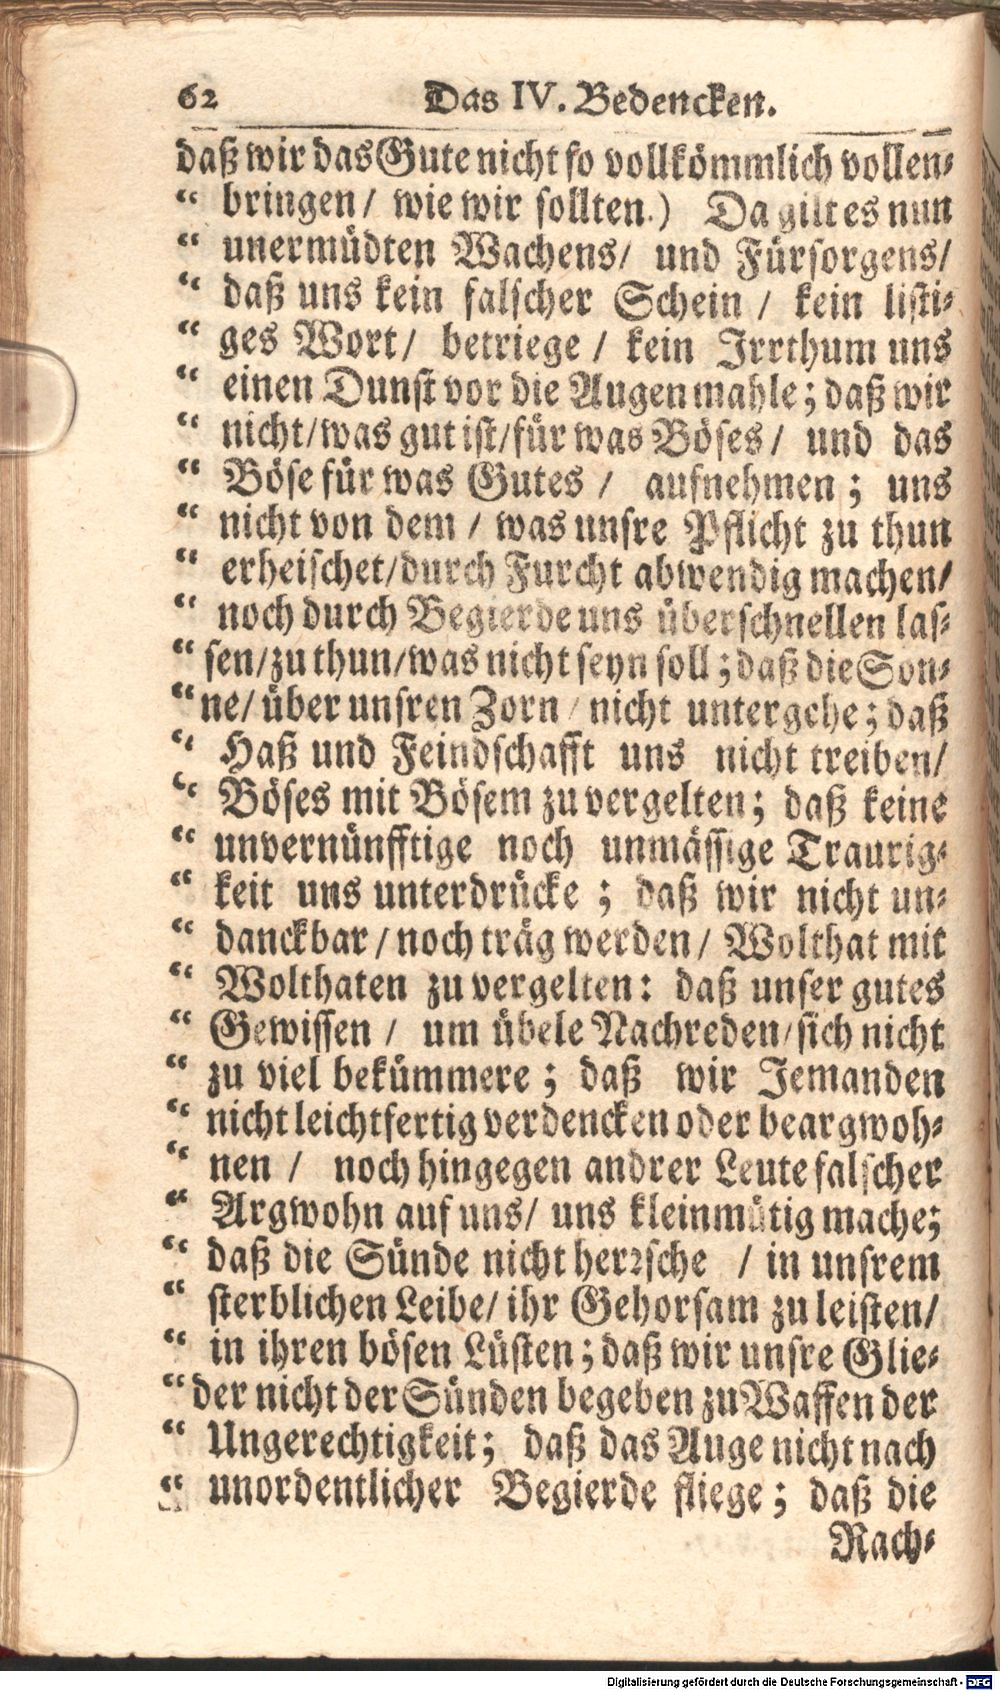 62 Das IV. Bedencken.
daß wir das Gute nicht so vollkömmlich vollen-
“ bringen/ wie wir sollten.) Da gilt es nun
“ unermüdten Wachens/ und Fürsorgens/
“ daß uns kein falscher Schein / kein listi-
“ ges Wort/ betriege / kein Irrthum uns
“ einen Dunst vor die Augen mahle; daß wir
“ nicht/was gut ist/für was Böses/ und das
“ Böse für was Gutes / aufnehmen; uns
“ nicht von dem / was unsre Pflicht zu thun
“ erheischet/durch Furcht abwendig machen/
“ noch durch Begierde uns überschnellen las-
“ sen/zu thun/was nicht seyn soll; daß die Son-
“ ne/ über unsren Zorn / nicht untergehe; daß
“ Haß und Feindschafft uns nicht treiben/
“ Böses mit Bösem zu vergelten; daß keine
“ unvernünfftige noch unmässige Traurig-
“ keit uns unterdrücke ; daß wir nicht un-
“ danckbar / noch träg werden/ Wolthat mit
“ Wolthaten zu vergelten: daß unser gutes
“ Gewissen / um übele Nachreden/sich nicht
“ zu viel bekümmere ; daß wir Jemanden
“ nicht leichtfertig verdencken oder beargwoh-
“ nen / noch hingegen andrer Leute falscher
“ Argwohn auf uns/ uns kleinmütig mache;
“ daß die Sünde nicht herꝛsche / in unsrem
“ sterblichen Leibe/ ihr Gehorsam zu leisten/
“ in ihren bösen Lüsten; daß wir unsre Glie-
“ der nicht der Sünden begeben zu Waffen der
“ Ungerechtigkeit; daß das Auge nicht nach
“ unordentlicher Begierde fliege; daß die
Rach-
Digitalisierung gefördert durch die Deutsche Forschungsgemeinschaft - DFG